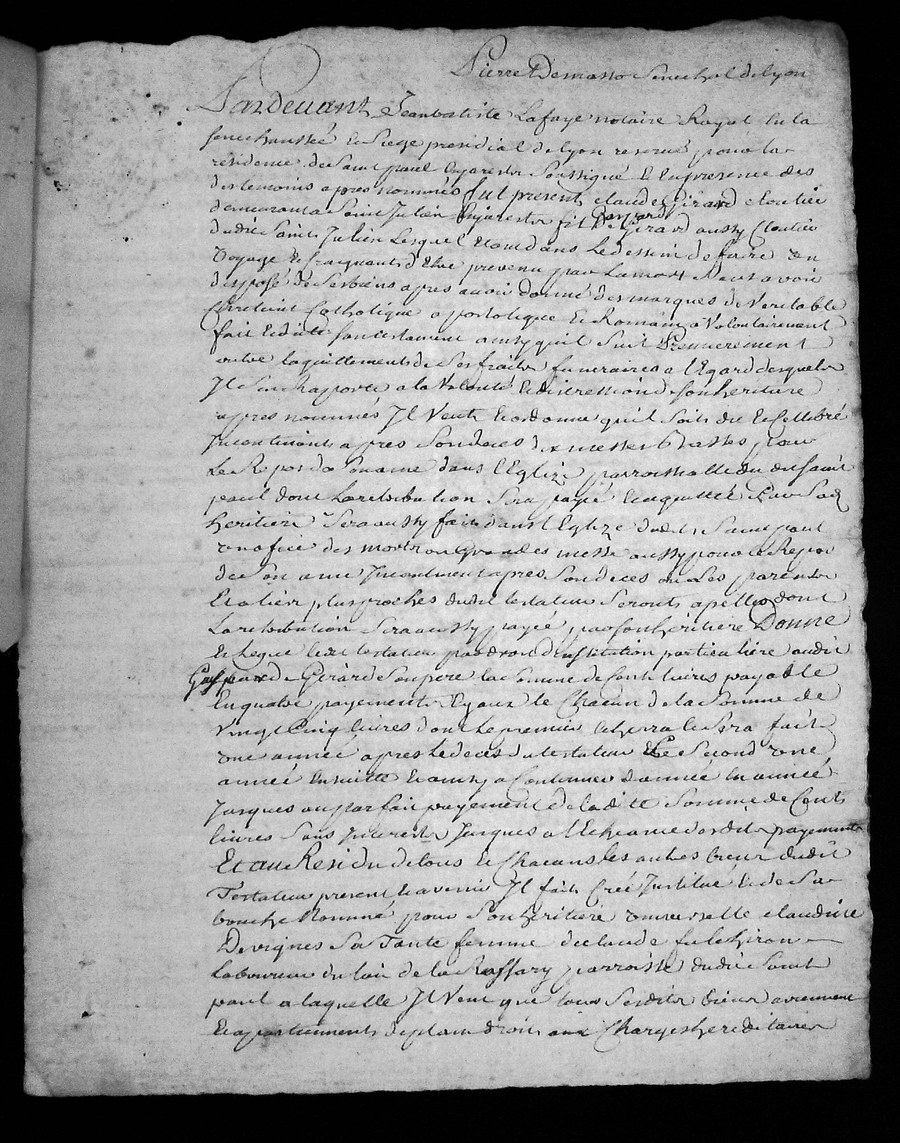 Pierre Demasso Senechal de lyon
Pardevant Jean batiste Lafaye notaire Royal en la
senechaussée & Siege presidial de lyon reservé pour la
residence de Saint paul en jarest Soussigné & En presence des
des temoins apres nommés fut present claude Girard cloutié
demeurant a Saint Julien En jarest fils de Gaspard Girard aussy Cloutié
dudit Saint Julien Lesquel Etant dans Le dessein de faire un
voyage & Craignant d'Etre prevenu par La mort Sans avoir
disposé de Ses biens apres avoir donné des marques de Veritable
Chretient Catholique apostolique & Romain a Volontairement
fait & dicté Son testament ainsy quil Suit Premierement
outre laquittements de Ses fraits funeraires a l'Egard desquels
Il Sen Raporte a la Volonté & discression de Son heritiere
apres nommées Il Veut & ordonne qu'il Soit dit & Cellebré
Incontinent apres Son deces dix messes basses pour
Le Repos de Son ame dans l'Eglize parroissialle du dit Saint
paul dont La retribution Sera payé & aquittée Par Sad
heritiere Sera aussy fait dans l'Eglize dudit Saint paul
un ofice des morts ou Grandes messe aussy pour le Repos
de Son ame Incontinent apres Son deces ou Les parents
& aliés plus proches dudit testateur Seronts apellés dont
La retribution Sera aussy payée par Son heritiere Donne
& Legue Ledit testateur par droit d'Institution particuliere audit
Gaspard Girard Son pere la Somme de Cent livres payable
En quatre payements Egaux & Chacun de la Somme de
vingt Cinq livres dont Le premier Echerra & Sera fait
une année apres Le deces du testateur & Le Second une
année Ensuitte & ainsy a Continuer d'année En année
Jusques au parfait payement de ladite Somme de Cent
livres Sans Interests Jusques a l'Echeance desdits payements
Et au Residu de tous & Chacuns Ses autres biens dudit
Testateur present & avenir Il fait Crée Institué & de Sa
bouche Nommé pour Son heritiere universelle claudine
Devignes Sa Tante femme de claude fulchiron
Laboureur du lieu de la Raffary parroisse dudit Saint
paul a laquelle Il Veut que tous Sesdits biens aviennent
& apartiennents de plain droit aux Charges hereditaires